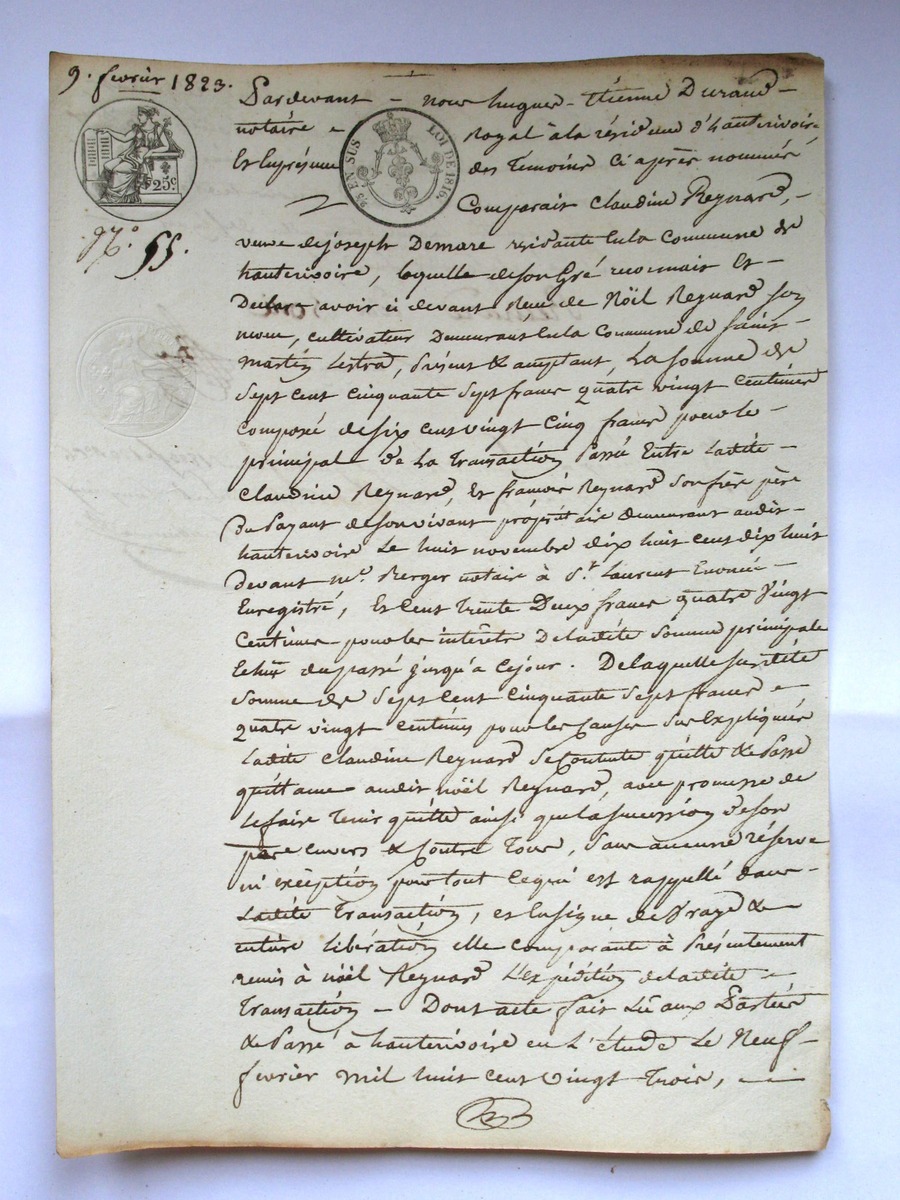 9. fevrier 1823.
Pardevant - nous hugues - Étienne Durand -
notaire - Royal à la résidence d'hauterivoire
Et En présence des Témoins Ci après nommés
25 c
EN SUS LOI DE 1816.
Comparait Claudine Reynard, -
N.° 55.
veuve de joseph Demare residante En la Commune de
hauterivoire, laquelle de son Gré reconnait Et -
Déclare avoir ci devant Reçu de Nöël Reynard son
neveu, cultivateur Demeurant En la Commune de Saint
martin Lestra, présent & acceptant, La somme de
Sept Cent Cinquante Sept francs quatre vingt Centimes
Composé de six Cent vingt Cinq francs pour le -
principal De La Transaction Passée Entre Ladite -
Claudine Reynard, Et françois Reynard Son frère père
Du Payant de Son vivant propriétaire demeurant audit -
hauterivoire Le huit novembre Dix huit Cent Dix huit
devant m.e Berger notaire à S.t Laurent
Enregistré, Et Cent Trente Deux francs quatre Vingt
Centimes pour les intérêts De Ladite Somme principale
Echus du passé jusqu'a Ce jour. De Laquelle Susdite
Somme de Sept Cent Cinquante Sept francs -
quatre vingt Centimes pour les Causes Sus Expliquées
Ladite Claudine Reynard Se Contente quitte & Passe
quittance audit nöël Reynard, avec promesse de
Le faire Tenir quitte ainsi que La succession de son
père envers & Contre Tous, Sans aucune réserve
ni exception pour tout Ce qui est rappellé dans -
Ladite Transaction, et En signe de Vraye & -
entière Libération elle Comparante à Présentement
remis à nöël Reynard L'expédition de Ladite -
Transaction - Dont acte fait Lû aux Parties
& Passé à hauterivoire en L'étude Le Neuf -
fevrier mil huit Cent Vingt Trois, -